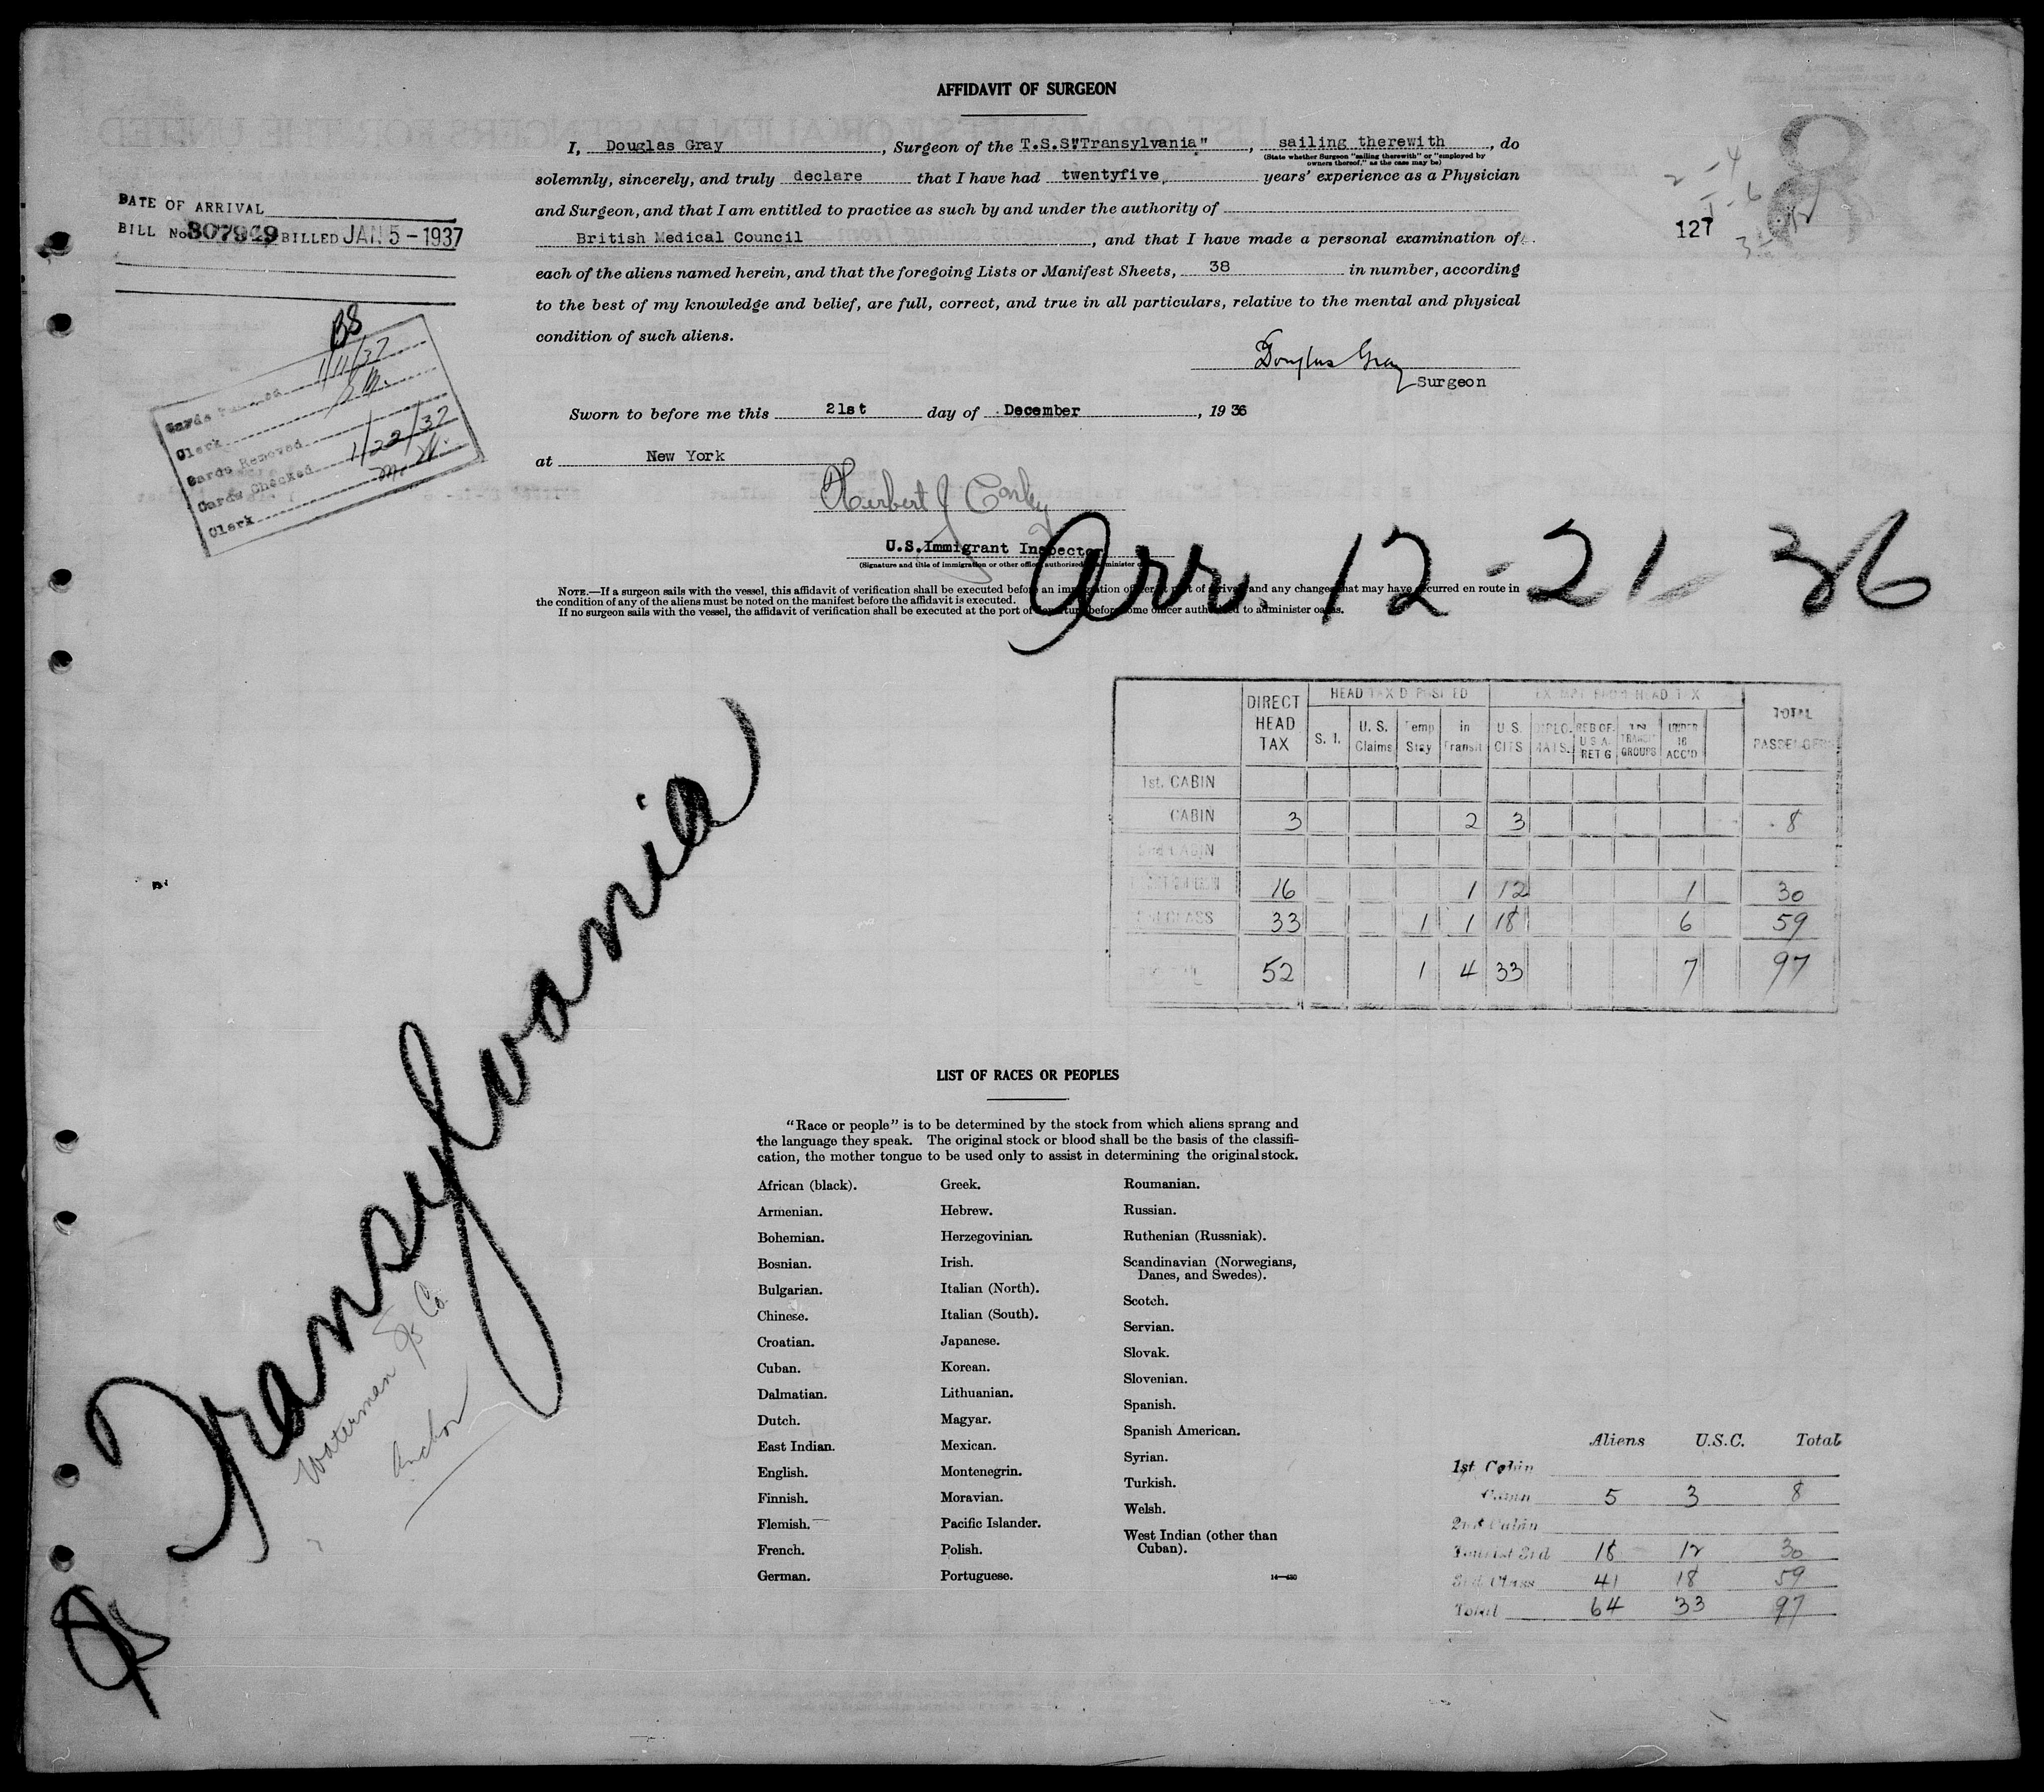 AFFIDAVIT OF SURGEON
I, Douglas Gray, Surgeon of the T.S.S."Transylvania", sailing therewith, do
(State whether Surgeon "sailing therewith" or "employed by
owners thereof," as the case may be)
solemnly, sincerely, and truly declare that I have had twentyfive, years' experience as a Physician
and Surgeon, and that I am entitled to practice as such by and under the authority of
British Medical Council, and that I have made a personal examination of
each of the aliens named herein, and that the foregoing Lists or Manifest Sheets, 38 in number, according
to the best of my knowledge and belief, are full, correct, and true in all particulars, relative to the mental and physical
condition of such aliens.
Douglas Gray
Surgeon
Sworn to before me this 21st day of December, 1936
at New York
Herbert J Conley
U.S. Immigrant Inspector
(Signature and title of immigration or other officer authorized to administer
NOTE.—If a surgeon sails with the vessel, this affidavit of verification shall be executed before an immigration officer at port of arrival and any changes that may have occurred en route in
the condition of any of the aliens must be noted on the manifest before the affidavit is executed.
If no surgeon sails with the vessel, the affidavit of verification shall be executed at the port of departure before some officer authorized to administer oaths.
DATE OF ARRIVAL
BILL No 307949 BILLED JAN 5-1937
BS
Cards 1/11/37
Clerk
Cards Removed
Cards Checked 1/22/37
Clerk M. H.
127
2 - 4
Arr. 12-21-36
Transylvania
Waterman & Co.
Anchor
DIRECT HEAD TAX HEAD TAX DEPOSITED EXEMPT FROM HEAD TAX TOTAL PASSENGERS
S. I. U. S. Claims Temp Stay in Transit U. S. CITS DIPLO-MATS. RES OF U S A RET G IN TRANSIT GROUPS UNDER 16 ACC'D
1st. CABIN
CABIN 3 2 3 8
2nd CABIN
16 1 12 1 30
3rd CLASS 33 1 1 18 6 59
TOTAL 52 1 4 33 7 97
LIST OF RACES OR PEOPLES
"Race or people" is to be determined by the stock from which aliens sprang and
the language they speak. The original stock or blood shall be the basis of the classifi-
cation, the mother tongue to be used only to assist in determining the original stock.
African (black).
Armenian.
Bohemian.
Bosnian.
Bulgarian.
Chinese.
Croatian.
Cuban.
Dalmatian.
Dutch.
East Indian.
English.
Finnish.
Flemish.
French.
German.
Greek.
Hebrew.
Herzegovinian.
Irish.
Italian (North).
Italian (South).
Japanese.
Korean.
Lithuanian.
Magyar.
Mexican.
Montenegrin.
Moravian.
Pacific Islander.
Polish.
Portuguese.
Roumanian.
Russian.
Ruthenian (Russniak).
Scandinavian (Norwegians,
Danes, and Swedes).
Scotch.
Servian.
Slovak.
Slovenian.
Spanish.
Spanish American.
Syrian.
Turkish.
Welsh.
West Indian (other than
Cuban).
Aliens U.S.C. Total
1st Cabin
Cabin 5 3 8
2nd Cabin
Tourist 3rd 18 12 30
3rd Class 41 18 59
Total 64 33 97